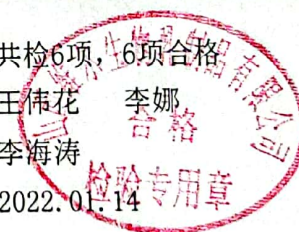 共检6项，6项合格
王伟花 李娜
李海涛
2022.01.14
生物制品有限公司
合格
检验专用章